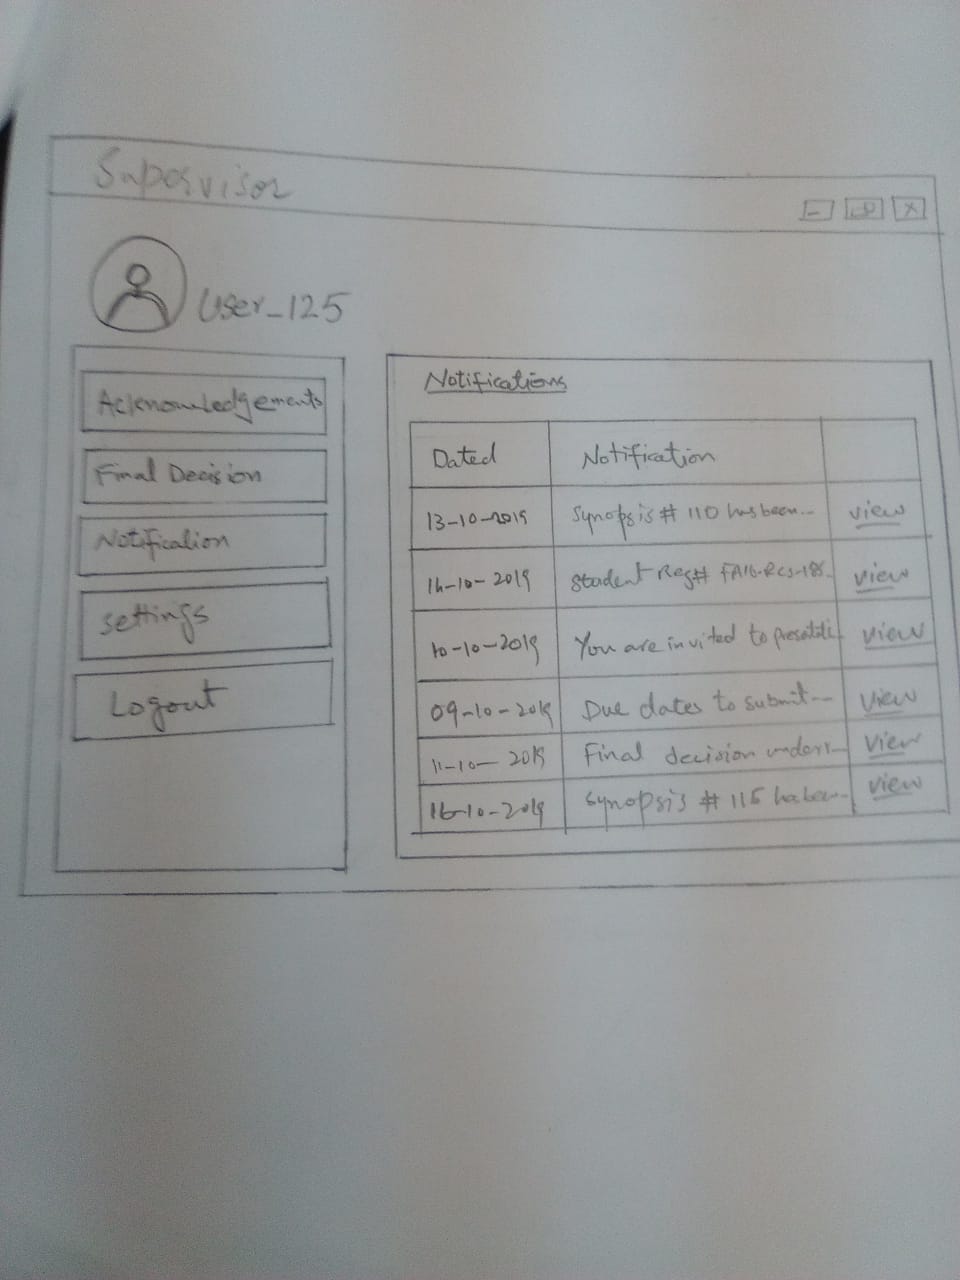 Supervisor
User_125
Acknowledgements
Final Decision
Notification
Settings
Logout
Notifications
Dated Notification
13-10-2019 Synopsis # 110 has been... view
14-10-2019 Student Reg# FA16-RCS-185.. view
10-10-2019 You are invited to view
09-10-2019 Due dates to submit... view
11-10-2019 Final decision view
16-10-2019 Synopsis # 115 view